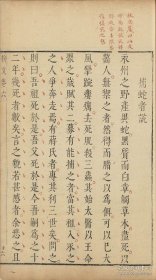 捕蛇者說
永州之野產異蛇黑質而白章觸草木盡死以
齧人無禦之者然得而腊之以為餌可以已大
風攣踠瘻癘去死肌殺三蟲其始太醫以王命
聚之歲賦其二募有能捕之者當其租入永之
人爭奔走焉有蔣氏者專其利三世矣問之
則曰吾祖死於是吾父死於是今吾嗣為之十
二年幾死者數矣言之貌若甚慼者余悲之且